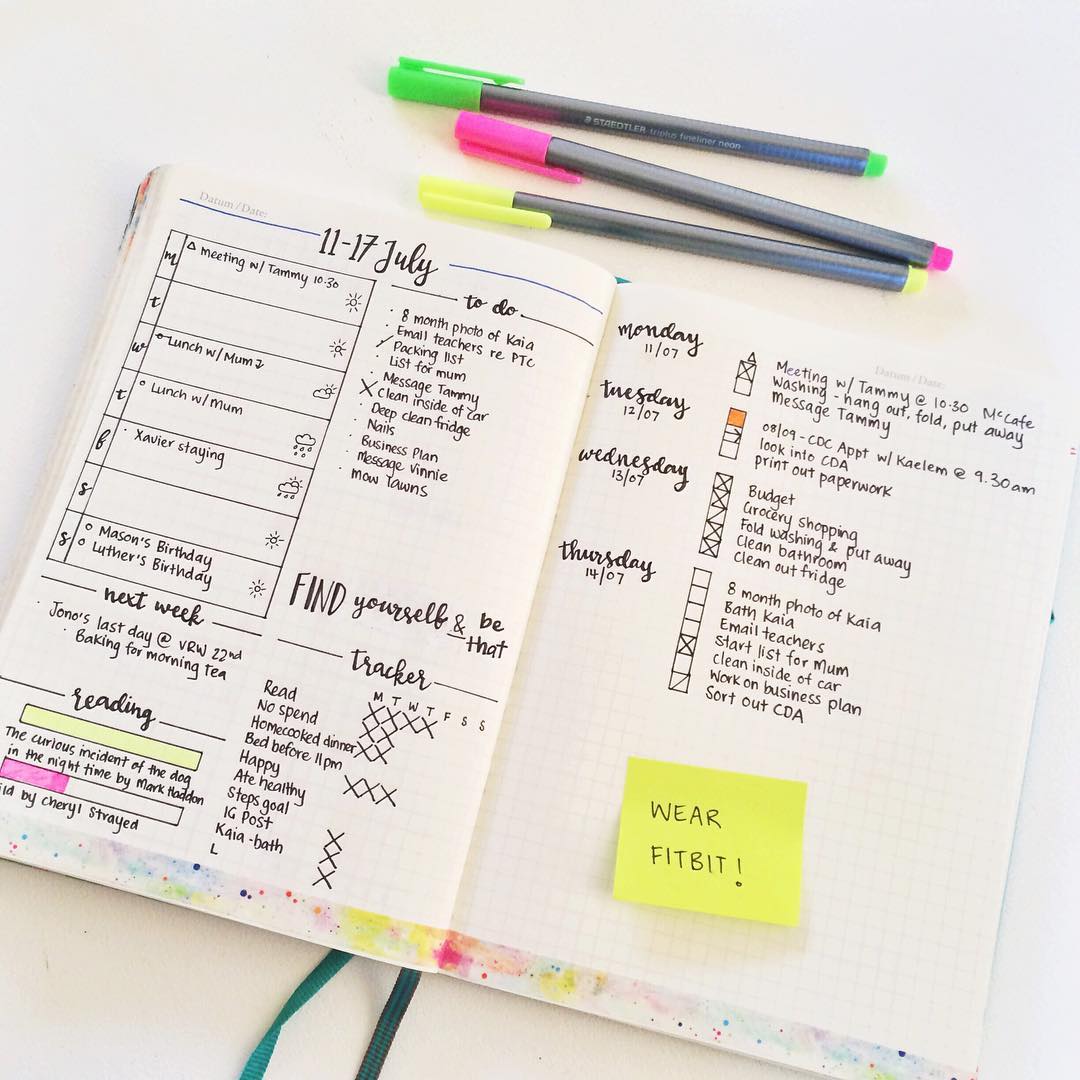 STAEDTLER triplus fineliner neon
Datum/Date:
11-17 July
m
Meeting w/ Tammy 10.30
t
w
Lunch w/ Mum
t
Lunch w/ Mum
f
Xavier staying
s
s
Mason's Birthday
Luther's Birthday
to do
8 month photo of Kaia
Email teachers re PTC
Packing list
List for mum
Message Tammy
Clean inside of car
Deep clean fridge
Nails
Business Plan
Message Vinnie
Mow lawns
next week
Jono's last day @ VRW 22nd
Baking for morning tea
FIND yourself & be
that
reading
The curious incident of the dog
in the night time by Mark Haddon
ild by Cheryl Strayed
tracker
M T W T F S S
Read
No spend
Homecooked dinner
Bed before 11pm
Happy
Ate healthy
Steps goal
IG Post
Kaia - bath
L
Datum/Date:
monday
11/07
Meeting w/ Tammy @ 10.30 McCafe
Washing - hang out, fold, put away
Message Tammy
tuesday
12/07
08/09 - CDC Appt w/ Kaelem @ 9.30am
look into CDA
print out paperwork
wednesday
13/07
Budget
Grocery shopping
Fold washing & put away
Clean bathroom
Clean out fridge
thursday
14/07
8 month photo of Kaia
Bath Kaia
Email teachers
Start list for Mum
Clean inside of car
Work on business plan
Sort out CDA
WEAR
FITBIT!